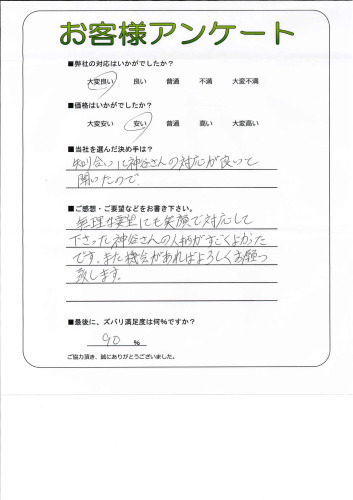 お客様アンケート
■弊社の対応はいかがでしたか?
大変良い 良い 普通 不満 大変不満
■価格はいかがでしたか?
大変安い 安い 普通 高い 大変高い
■当社を選んだ決め手は?
知り合いに神谷さんの対応が良いて
聞いたので
■ご感想・ご要望などをお書き下さい。
無理な要望にも笑顔で対応して
下さった神谷さんの人柄がすごくよかった
です。また機会があればよろしくお願い
致します。
■最後に、ズバリ満足度は何%ですか?
90 %
ご協力頂き、誠にありがとうございました。